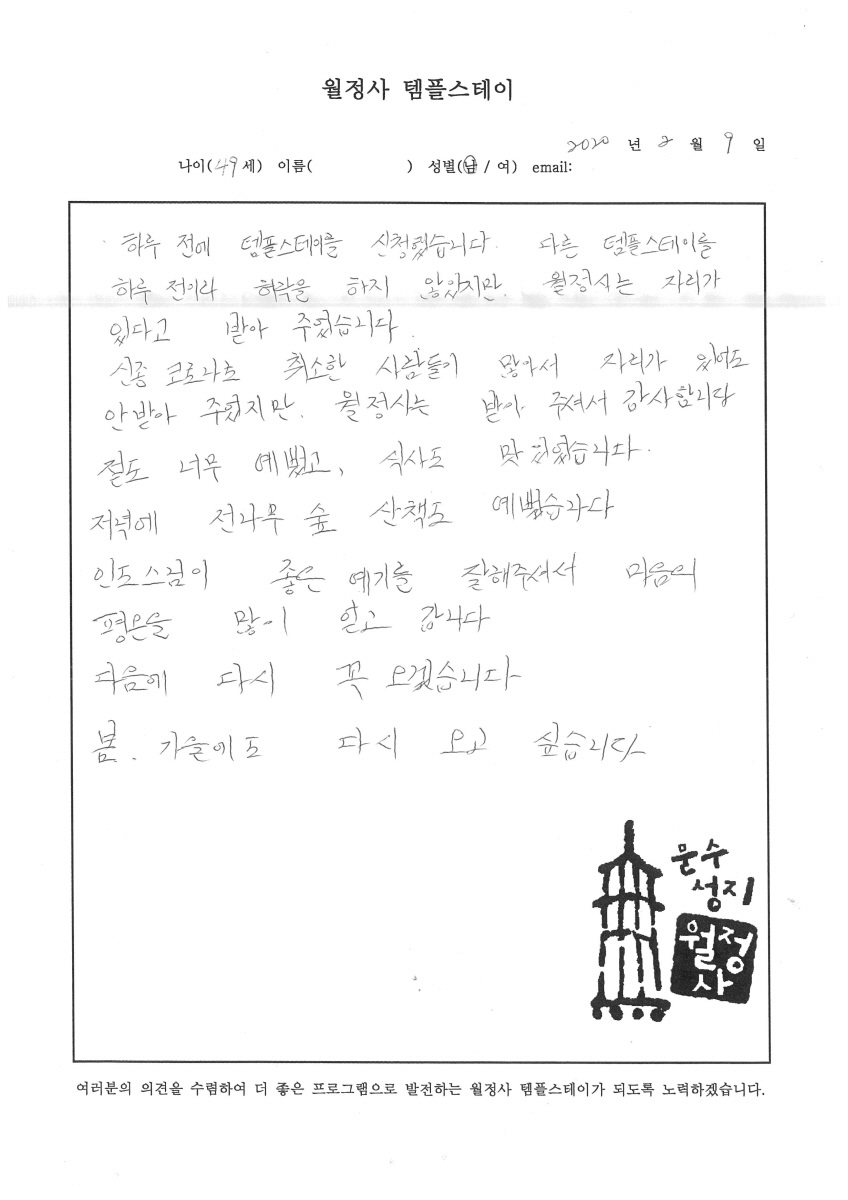 월정사 템플스테이
2020 년 2 월 9 일
나이(49세) 이름( ) 성별(남 / 여) email:
하루 전에 템플스테이를 신청했습니다. 다른 템플스테이를
하루 전이라 허락을 하지 않았지만. 월정사는 자리가
있다고 받아 주었습니다.
신종 코로나로 취소한 사람들이 많아서 자리가 있어도
안받아 주었지만. 월정사는 받아 주셔서 감사합니다
절도 너무 예뻤고, 식사도 맛있었습니다.
저녁에 전나무 숲 산책도 예뻤습니다
인도스님이 좋은 얘기를 잘해주셔서 마음의
평온을 많이 얻고 갑니다
다음에 다시 꼭 오겠습니다
봄. 가을에도 다시 오고 싶습니다
문수
성지
월정
사
여러분의 의견을 수렴하여 더 좋은 프로그램으로 발전하는 월정사 템플스테이가 되도록 노력하겠습니다.